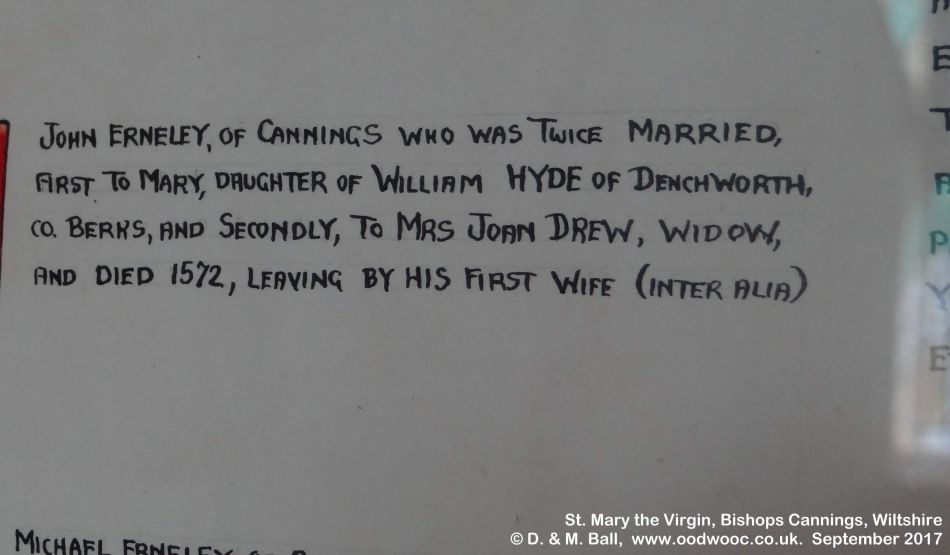 JOHN ERNELEY, OF CANNINGS WHO WAS TWICE MARRIED,
FIRST TO MARY, DAUGHTER OF WILLIAM HYDE OF DENCHWORTH,
CO. BERKS, AND SECONDLY, TO MRS JOAN DREW, WIDOW,
AND DIED 1572, LEAVING BY HIS FIRST WIFE (INTER ALIA)
MICHAEL ERNELEY
E
T
A
P
Y
E
St. Mary the Virgin, Bishops Cannings, Wiltshire
© D. & M. Ball, www.oodwooc.co.uk. September 2017